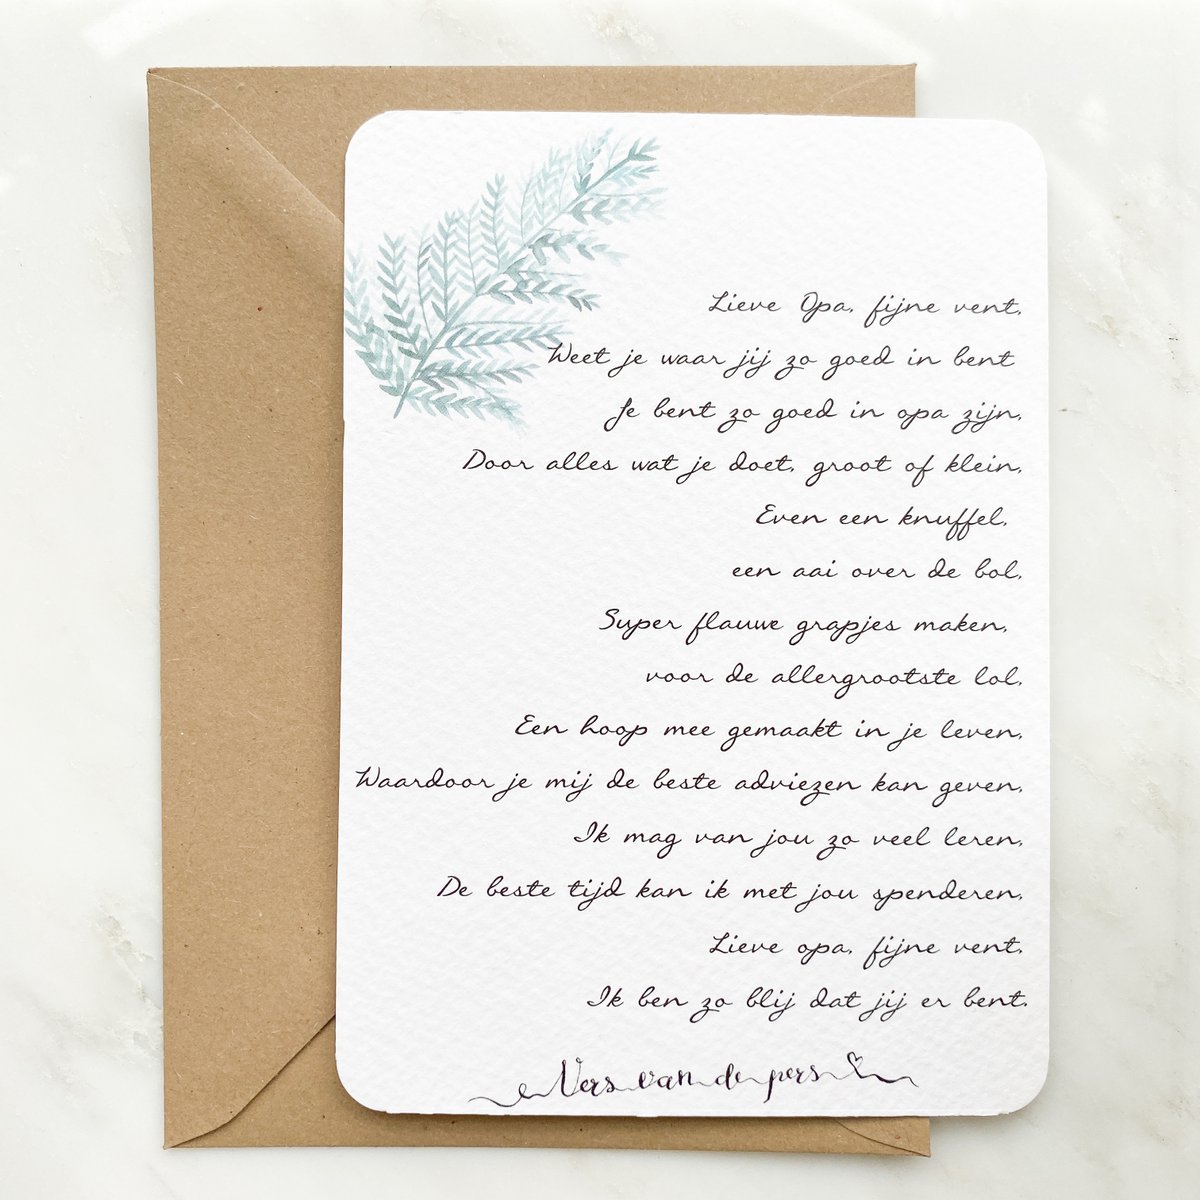 Lieve Opa, fijne vent,
Weet je waar jij zo goed in bent
Je bent zo goed in opa zijn,
Door alles wat je doet, groot of klein,
Even een knuffel,
een aai over de bol,
Super flauwe grapjes maken,
voor de allergrootste lol,
Een hoop mee gemaakt in je leven,
Waardoor je mij de beste adviezen kan geven,
Ik mag van jou zo veel leren,
De beste tijd kan ik met jou spenderen,
Lieve opa, fijne vent,
Ik ben zo blij dat jij er bent.
Vers van de pers